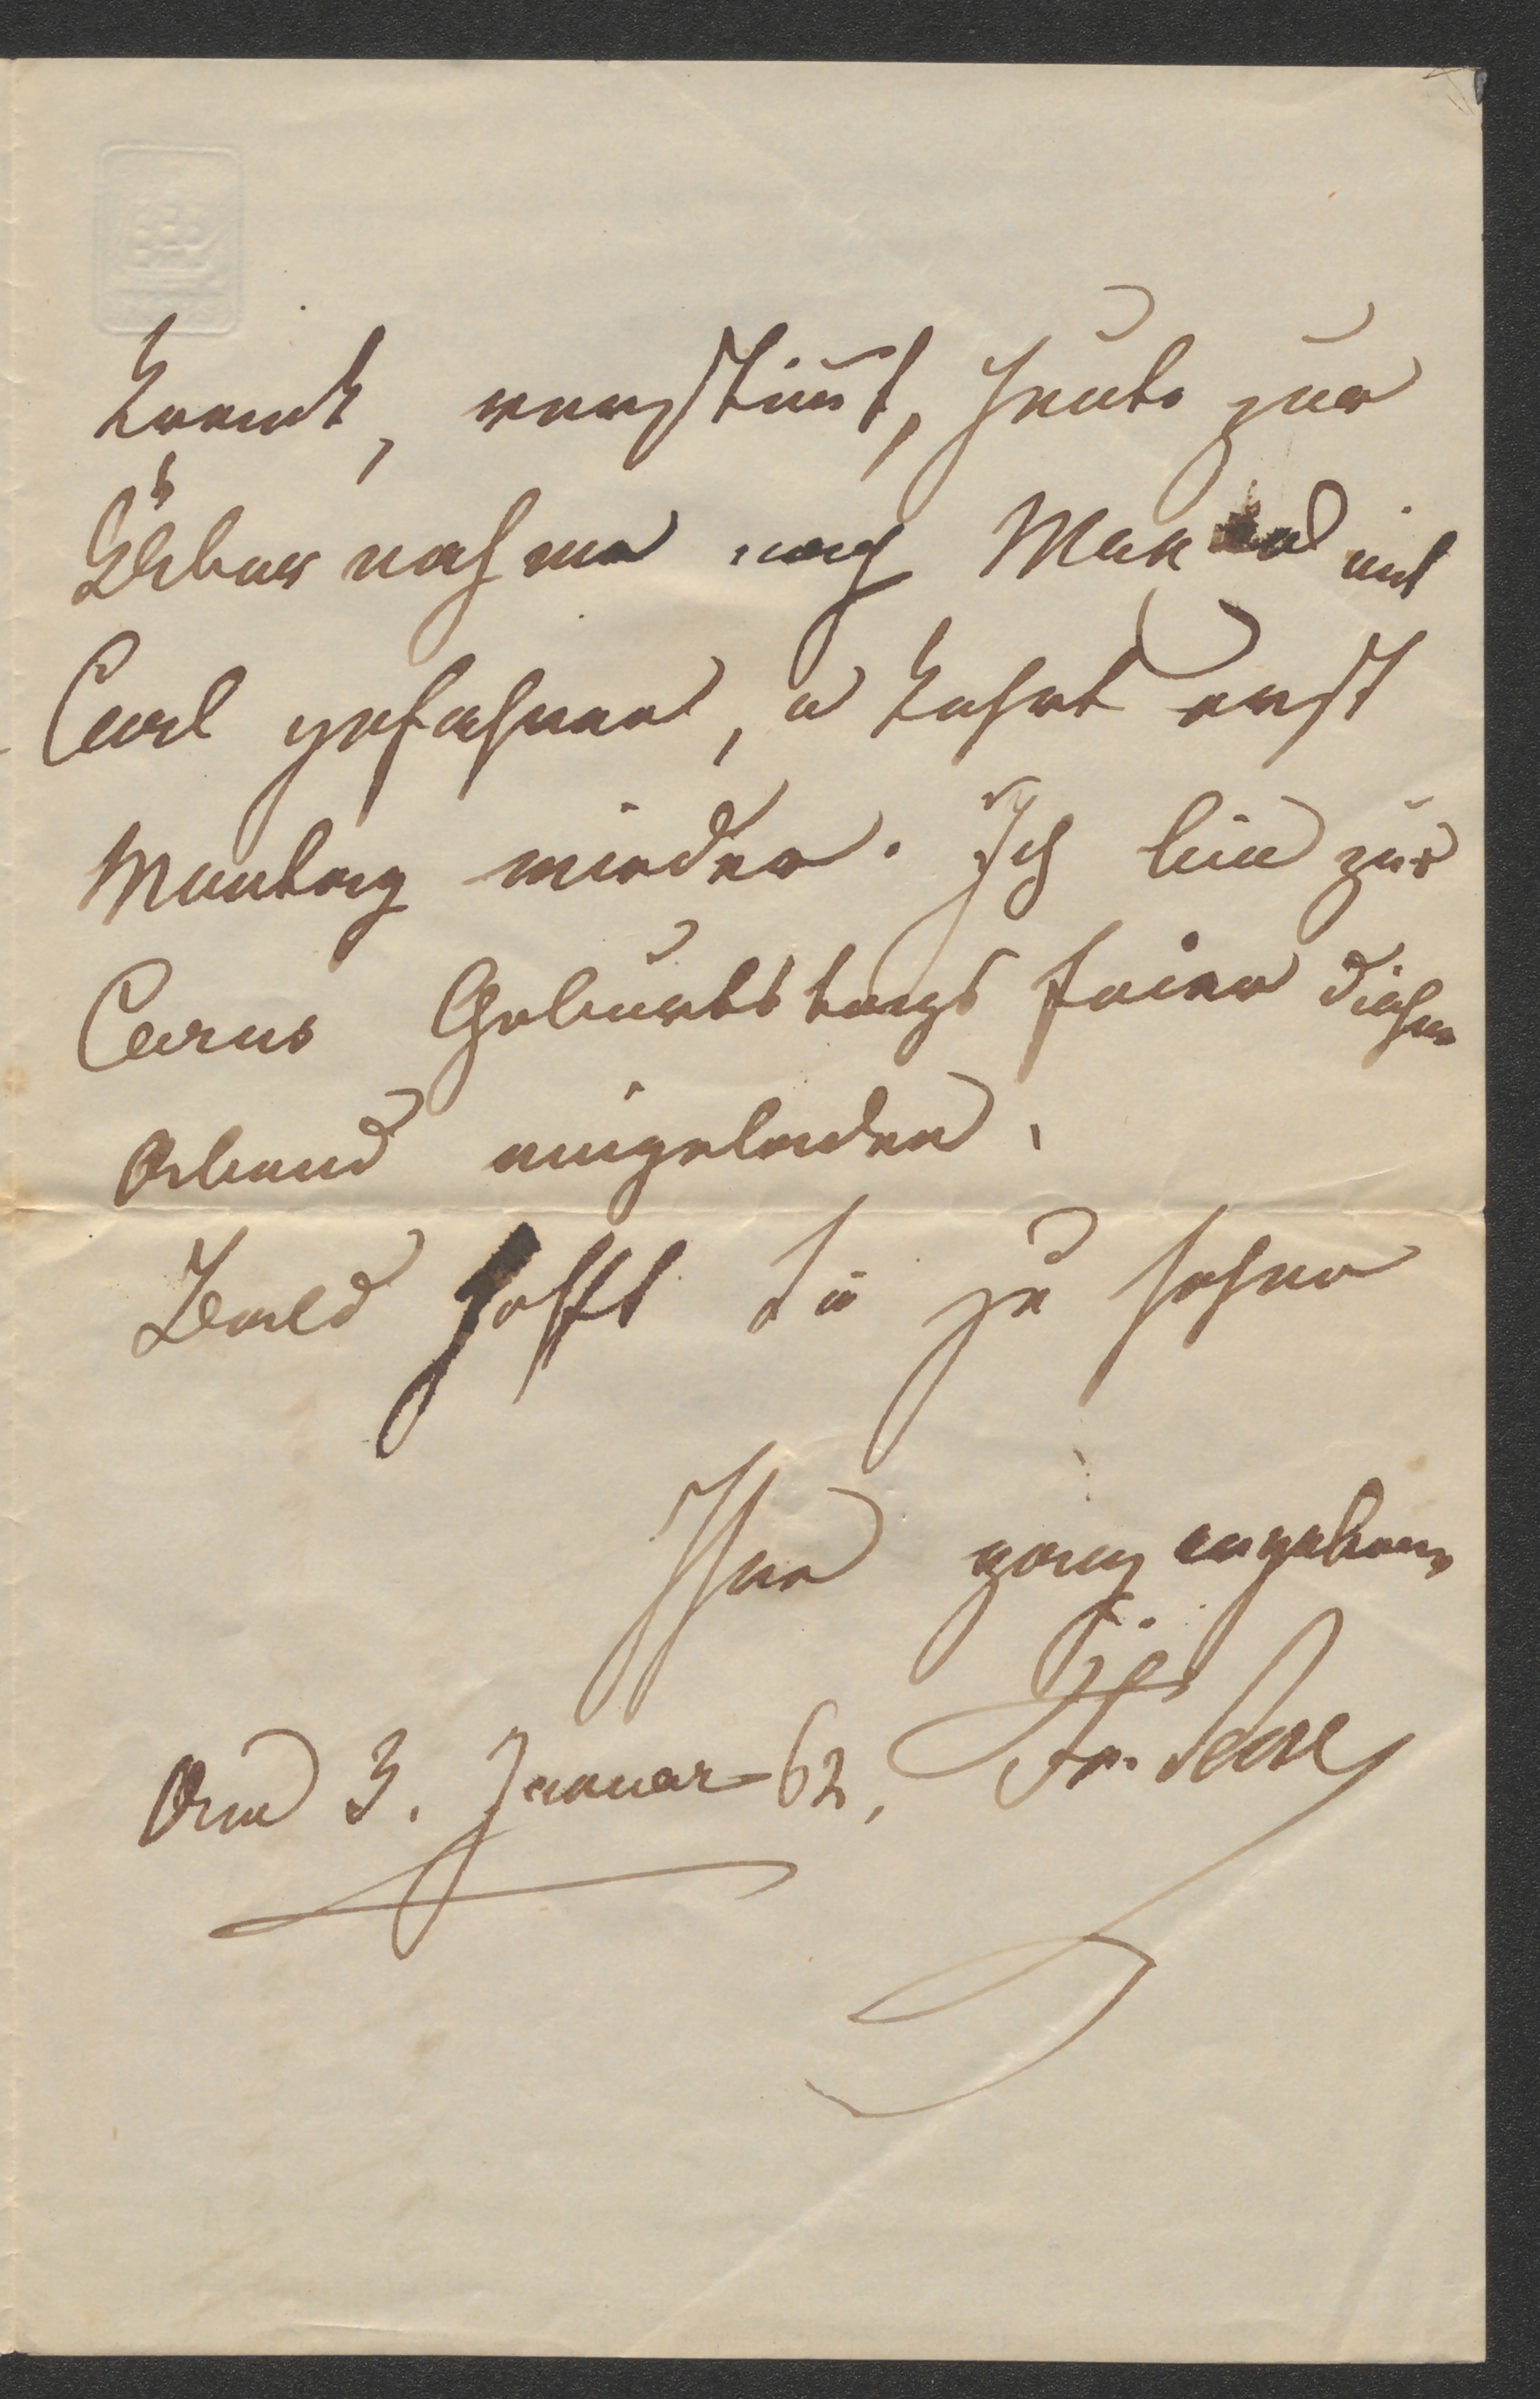 krank, verstim̄t, heute zur
Übernahme nach Maxen mit
Carl gefahren, u kehrt erst
Montag wieder. Ich bin zur
Carus Geburtstags feier diesen
Abend eingeladen.
Bald hofft Sie zu sehen
Ihre ganz ergebene
Fr. Serre
Am 3. Januar 62,